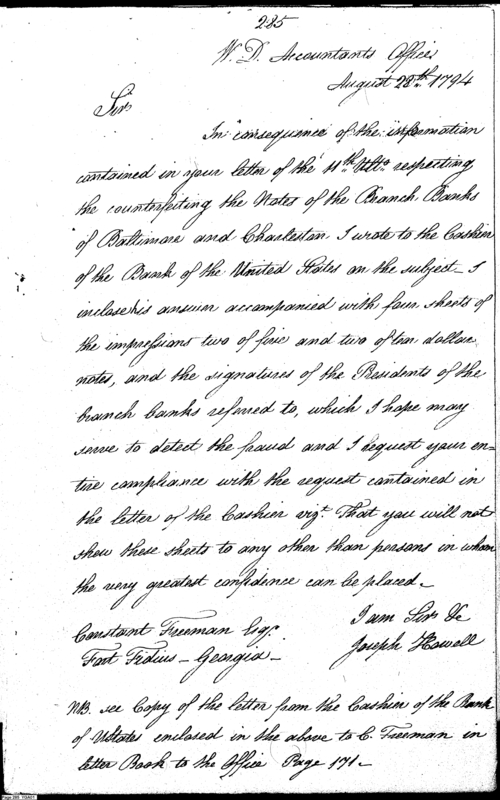 285
W. D. Accountants Office
August 28th 1794
Sir
In consequence of the information
contained in your letter of the 11th Ulto respecting
the counterfeiting the Notes of the Branch Banks
of Baltimore and Charleston I wrote to the Cashier
of the Bank of the United States on the subject – I
inclose his answer accompanied with four sheets of
the impressions two of five and two of ten dollar
notes, and the signatures of the Presidents of the
branch banks referred to, which I hope may
serve to detect the fraud and I request your en-
tire compliance with the request contained in
the letter of the Cashier vizt. That you will not
shew these sheets to any other than persons in whom
the very greatest confidence can be placed –
I am Sir &c
Joseph Howell
Constant Freeman Esqr.
Fort Fidius – Georgia –
NB. see Copy of the letter from the Cashier of the Bank
of UStates enclosed in the above to C. Freeman in
letter Book to the Office Page 171 –